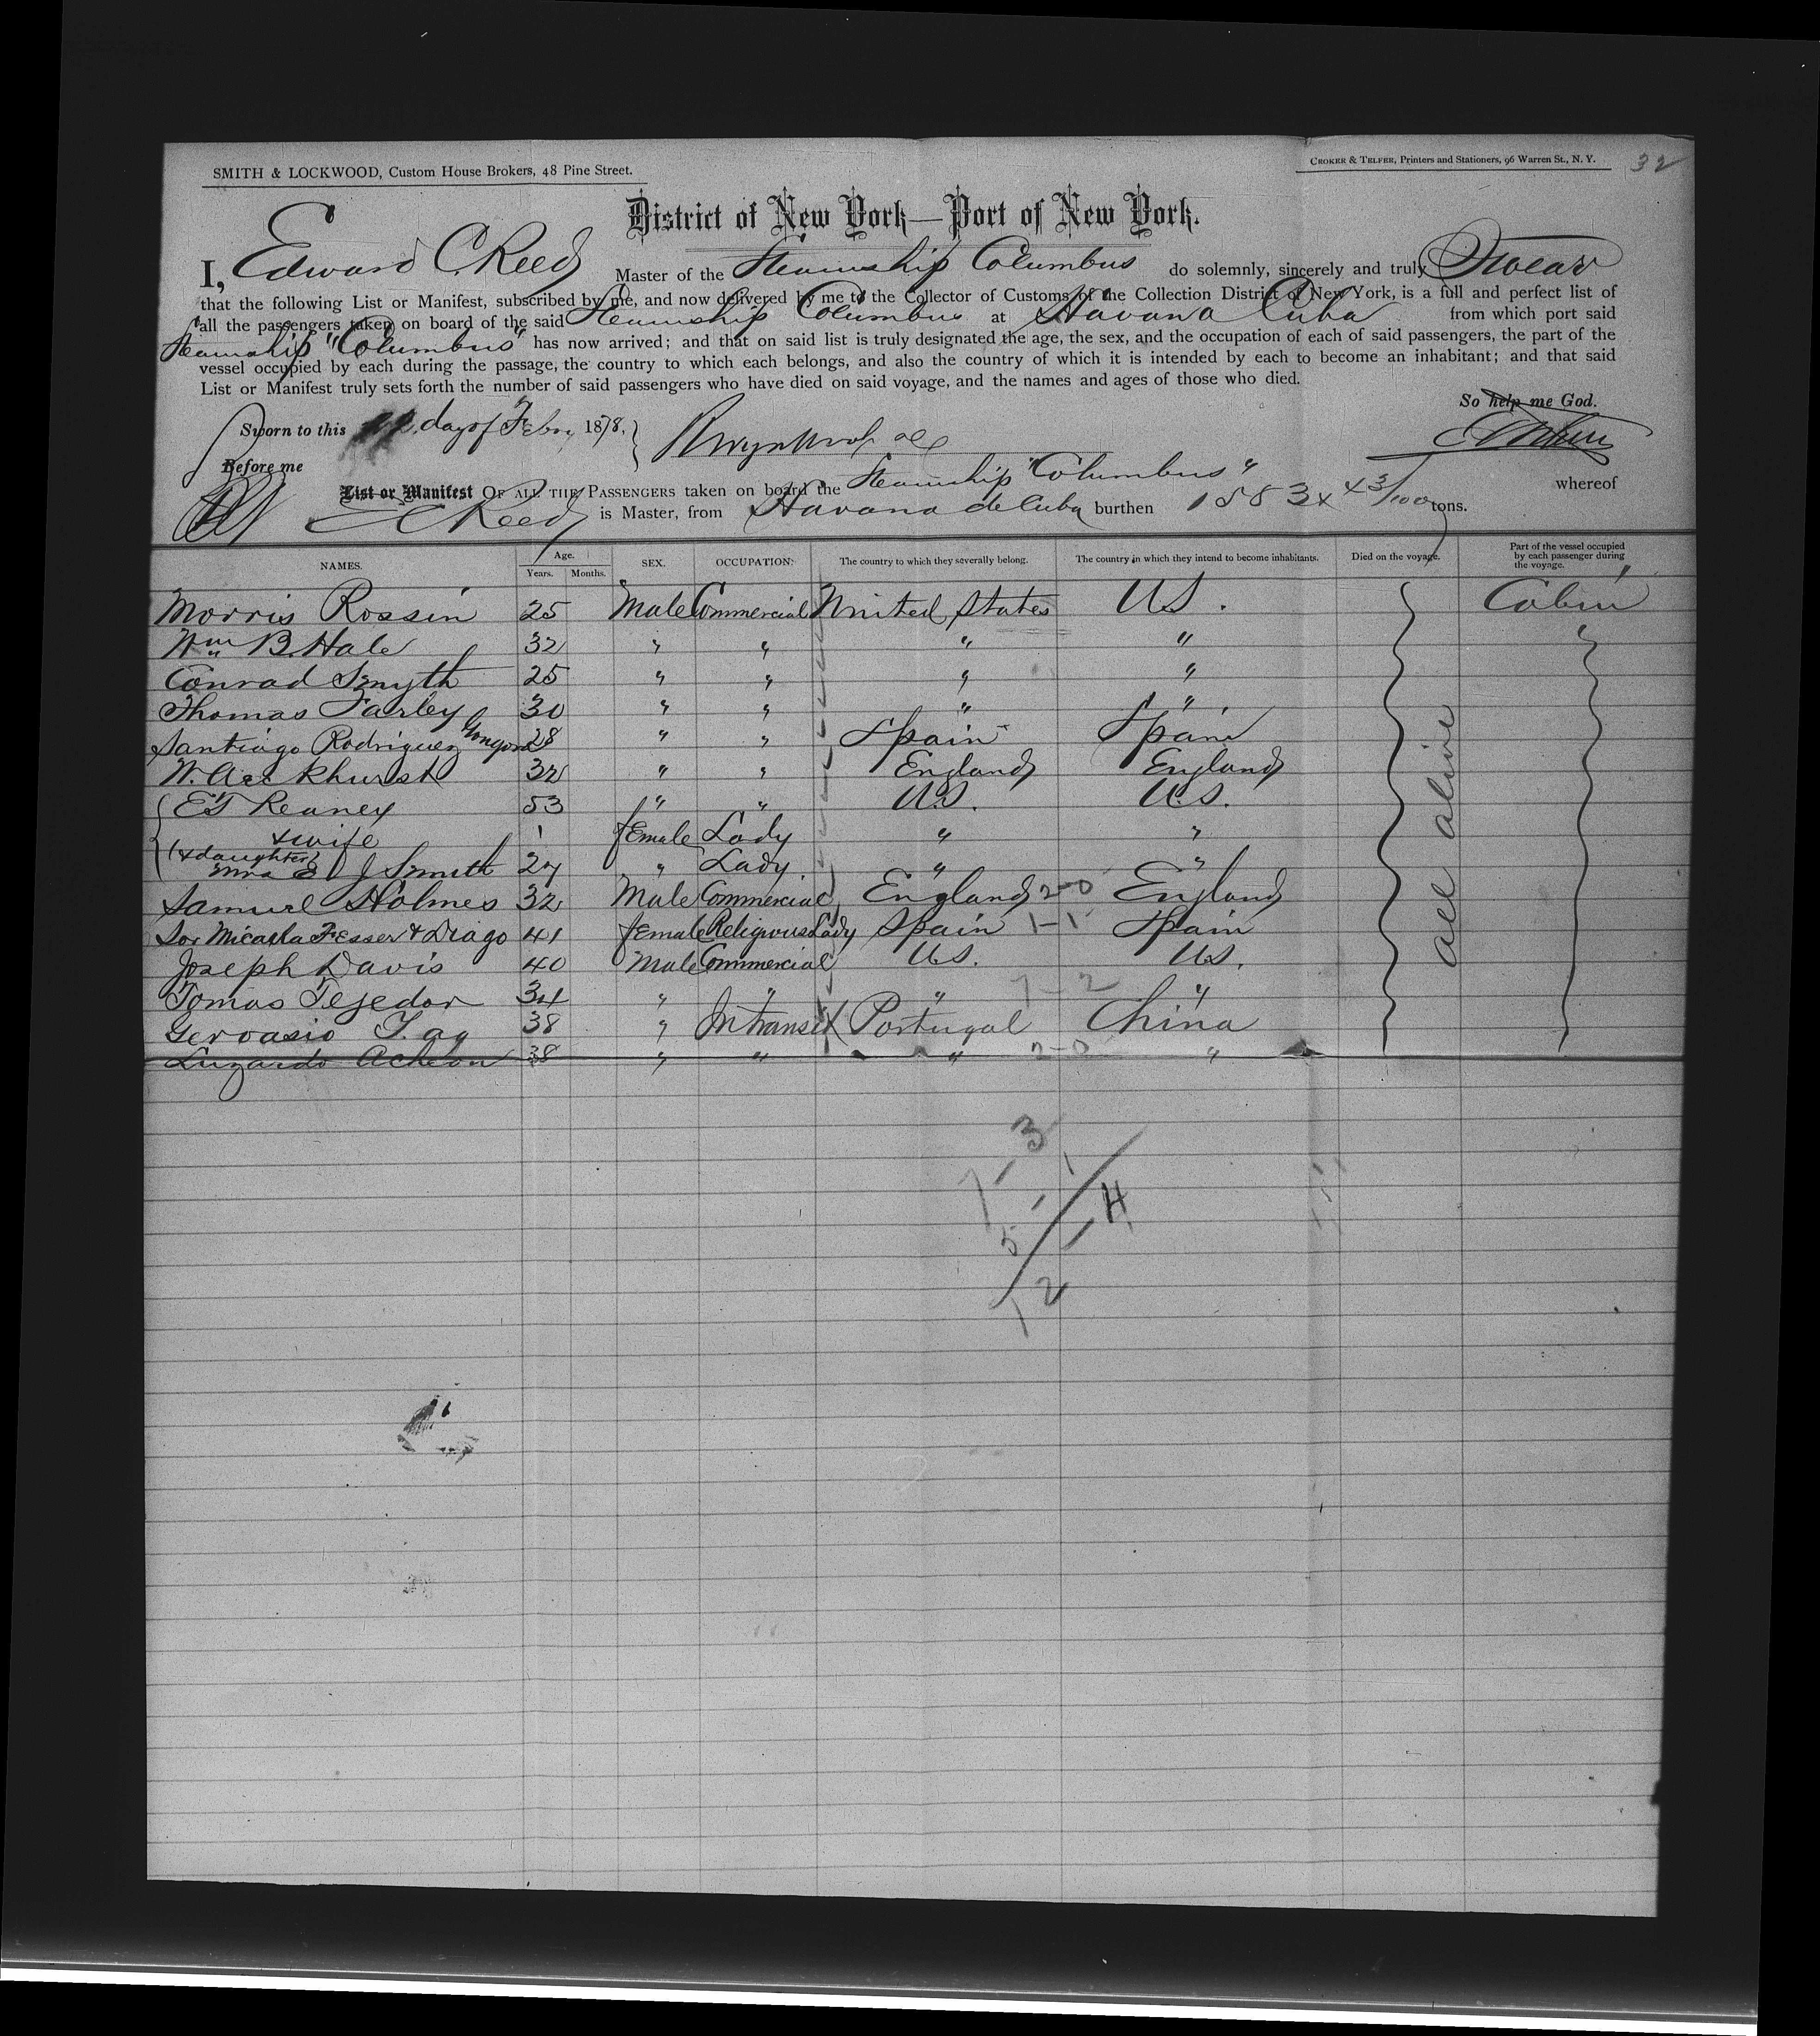 SMITH & LOCKWOOD, Custom House Brokers, 48 Pine Street.
CROKER & TELFER, Printers and Stationers, 96 Warren St., N. Y.
32
District of New York—Port of New York.
I, Edward C. Reed Master of the Steamship Columbus do solemnly, sincerely and truly Swear
that the following List or Manifest, subscribed by me, and now delivered by me to the Collector of Customs of the Collection District of New York, is a full and perfect list of
all the passengers taken on board of the said Steamship Columbus at Havana Cuba from which port said
Steamship "Columbus" has now arrived; and that on said list is truly designated the age, the sex, and the occupation of each of said passengers, the part of the
vessel occupied by each during the passage, the country to which each belongs, and also the country of which it is intended by each to become an inhabitant; and that said
List or Manifest truly sets forth the number of said passengers who have died on said voyage, and the names and ages of those who died.
So help me God.
Sworn to this day of Febry 1878.
Before me
List or Manifest OF ALL THE PASSENGERS taken on board the Steamship "Columbus" whereof
E C Reed is Master, from Havana de Cuba burthen 1583 x 43/100 tons.
NAMES. Age. Years. Months. SEX. OCCUPATION: The country to which they severally belong. The country in which they intend to become inhabitants. Died on the voyage. Part of the vessel occupied by each passenger during the voyage.
Morris Rossin 25 Male Commercial United States U.S. Cabin
Wm B. Hale 32 " " " "
Conrad Smyth 25 " " " "
Thomas Farley 30 " " " "
Santiago Rodriguez Gongora 28 " " Spain Spain
W. Ackkhurst 32 " " England England
E T Reaney 53 " " U.S. U.S.
& wife female Lady " "
(& daughter) J Smith 27 " Lady " "
Samuel Holmes 32 Male Commercial England 2-0 England
Sor Micaela Fesser & Diago 41 female Religious Lady Spain 1-1 Spain
Joseph Davis 40 Male Commercial U.S. U.S.
Tomas Tejedor 34 " " " 7-2 "
Gervasio T. ay 38 " In transit Portugal China
Luzardo Acheon 38 " " " 2-0 "
all alive
7-3
5-1
12-4